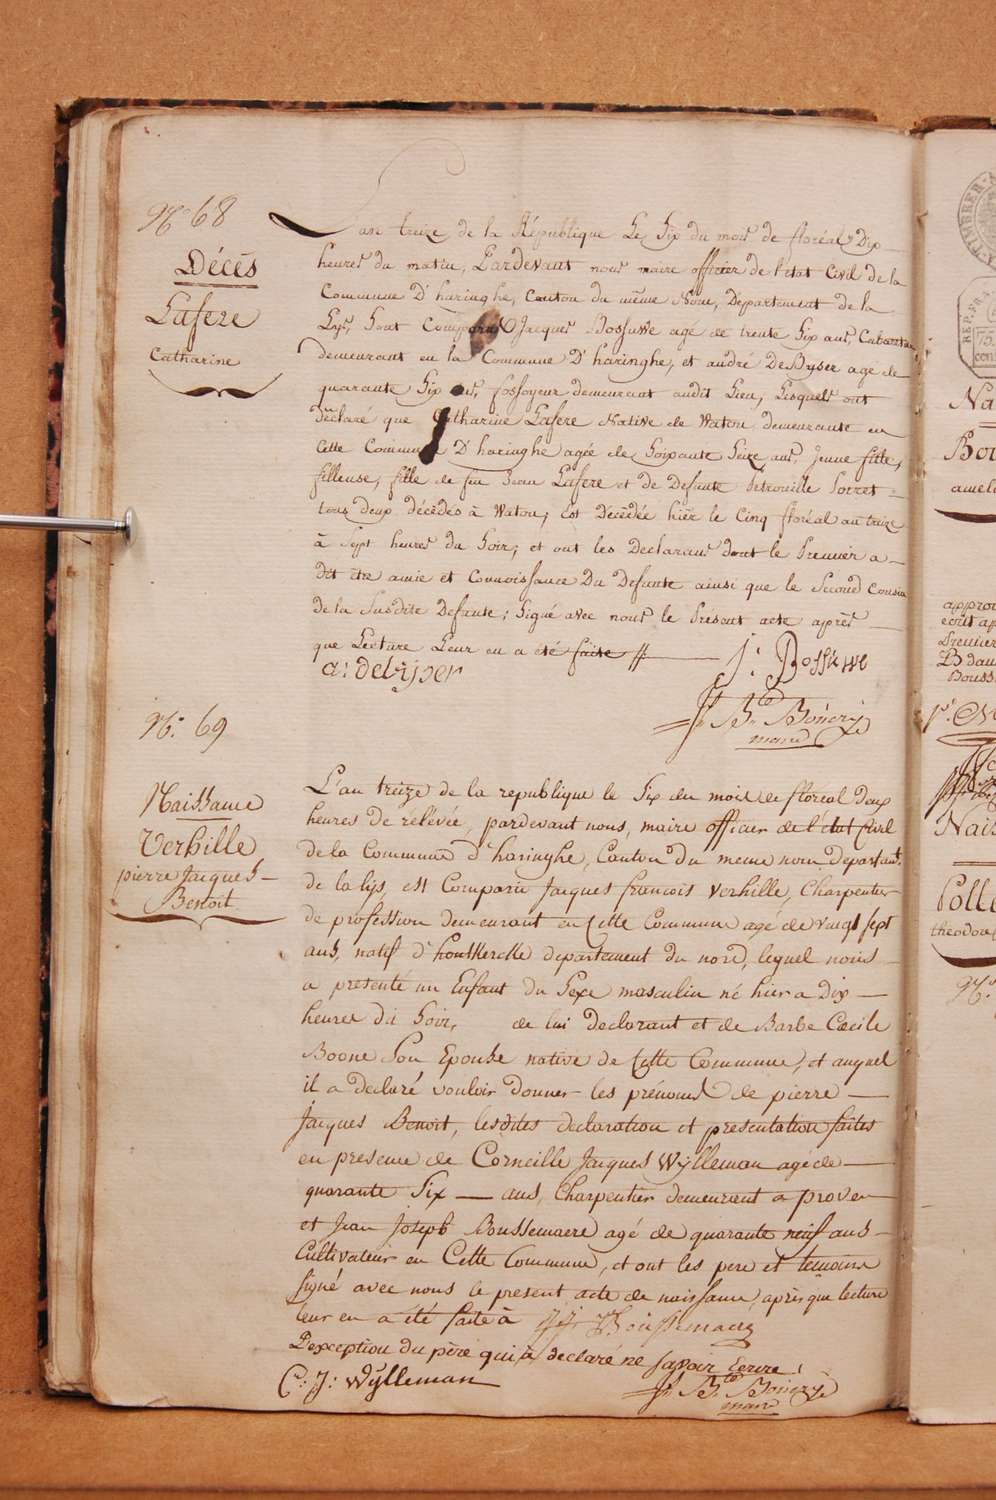 No. 68
Décès
Lafere
Catharine
L'an treize de la République Le Six du mois de floréal Dix
heures du matin, Pardevant nous maire officier de l'état Civil de la
Commune D'haringhe, Canton du même Nom, Département de la
Lys, Sont Comparus Jacques Bossuwe agé de trente Six ans, Cabaretier
demeurant en la Commune D'haringhe, et andré DeByser age de
quarante Six ans, fossoyeur demeurant audit Lieu, Lesquels ont
déclaré que Catharine Lafere Native de Watou demeurante en
Cette Commune D'haringhe agée de Soixante Seize ans, Jeune fille,
filleuse, fille de feu Jean Lafere et de Defunte Petronille
tous deux décédés à Watou, Est Décédée hier le Cinq floréal an treize
à Sept heures du Soir, et ont les Declarans dont le Premier a
dit être amie et Connoissance Du Defunte ainsi que le Second Cousin
de la Susdite Defunte; Signé avec nous le Present acte après
que Lecture Leur en a été faite //.
a: debyser
J: Bossuwe
maire
No. 69
Naissance
Verhille
pierre Jacques
Benoit
L'an treize de la republique le Six du mois de floréal Deux
heures de relevée, pardevant nous, maire officier de l'état Civil
de la Commune d'haringhe, Canton du meme nom departemt.
de la lys, est Comparu Jacques francois Verhille, Charpentier
de profession demeurant en Cette Commune agé de vingt sept
ans, natif d'houtkercke departement du nord, lequel nous
a presenté un Enfant du Sexe masculin né hier a Dix
heures du Soir, de lui declarant et de Barbe Cæcile
Boone Son Epouse native de Cette Commune, et auquel
il a declaré vouloir donner les prénoms de pierre
Jacques Benoit, lesdites declaration et presentation faites
en presence de Corneille Jacques Wylleman agé de
quarante Six ans, Charpentier demeurant a proven
et Jean Joseph Boussemaere agé de quarante neuf ans
Cultivateur en Cette Commune, et ont les pere et temoins
signé avec nous le present acte de naissance, après que lecture
leur en a été faite à J: J: Boussemaere
L'exception du père qui a declaré ne savoir Ecrire,
C: J: Wylleman
maire